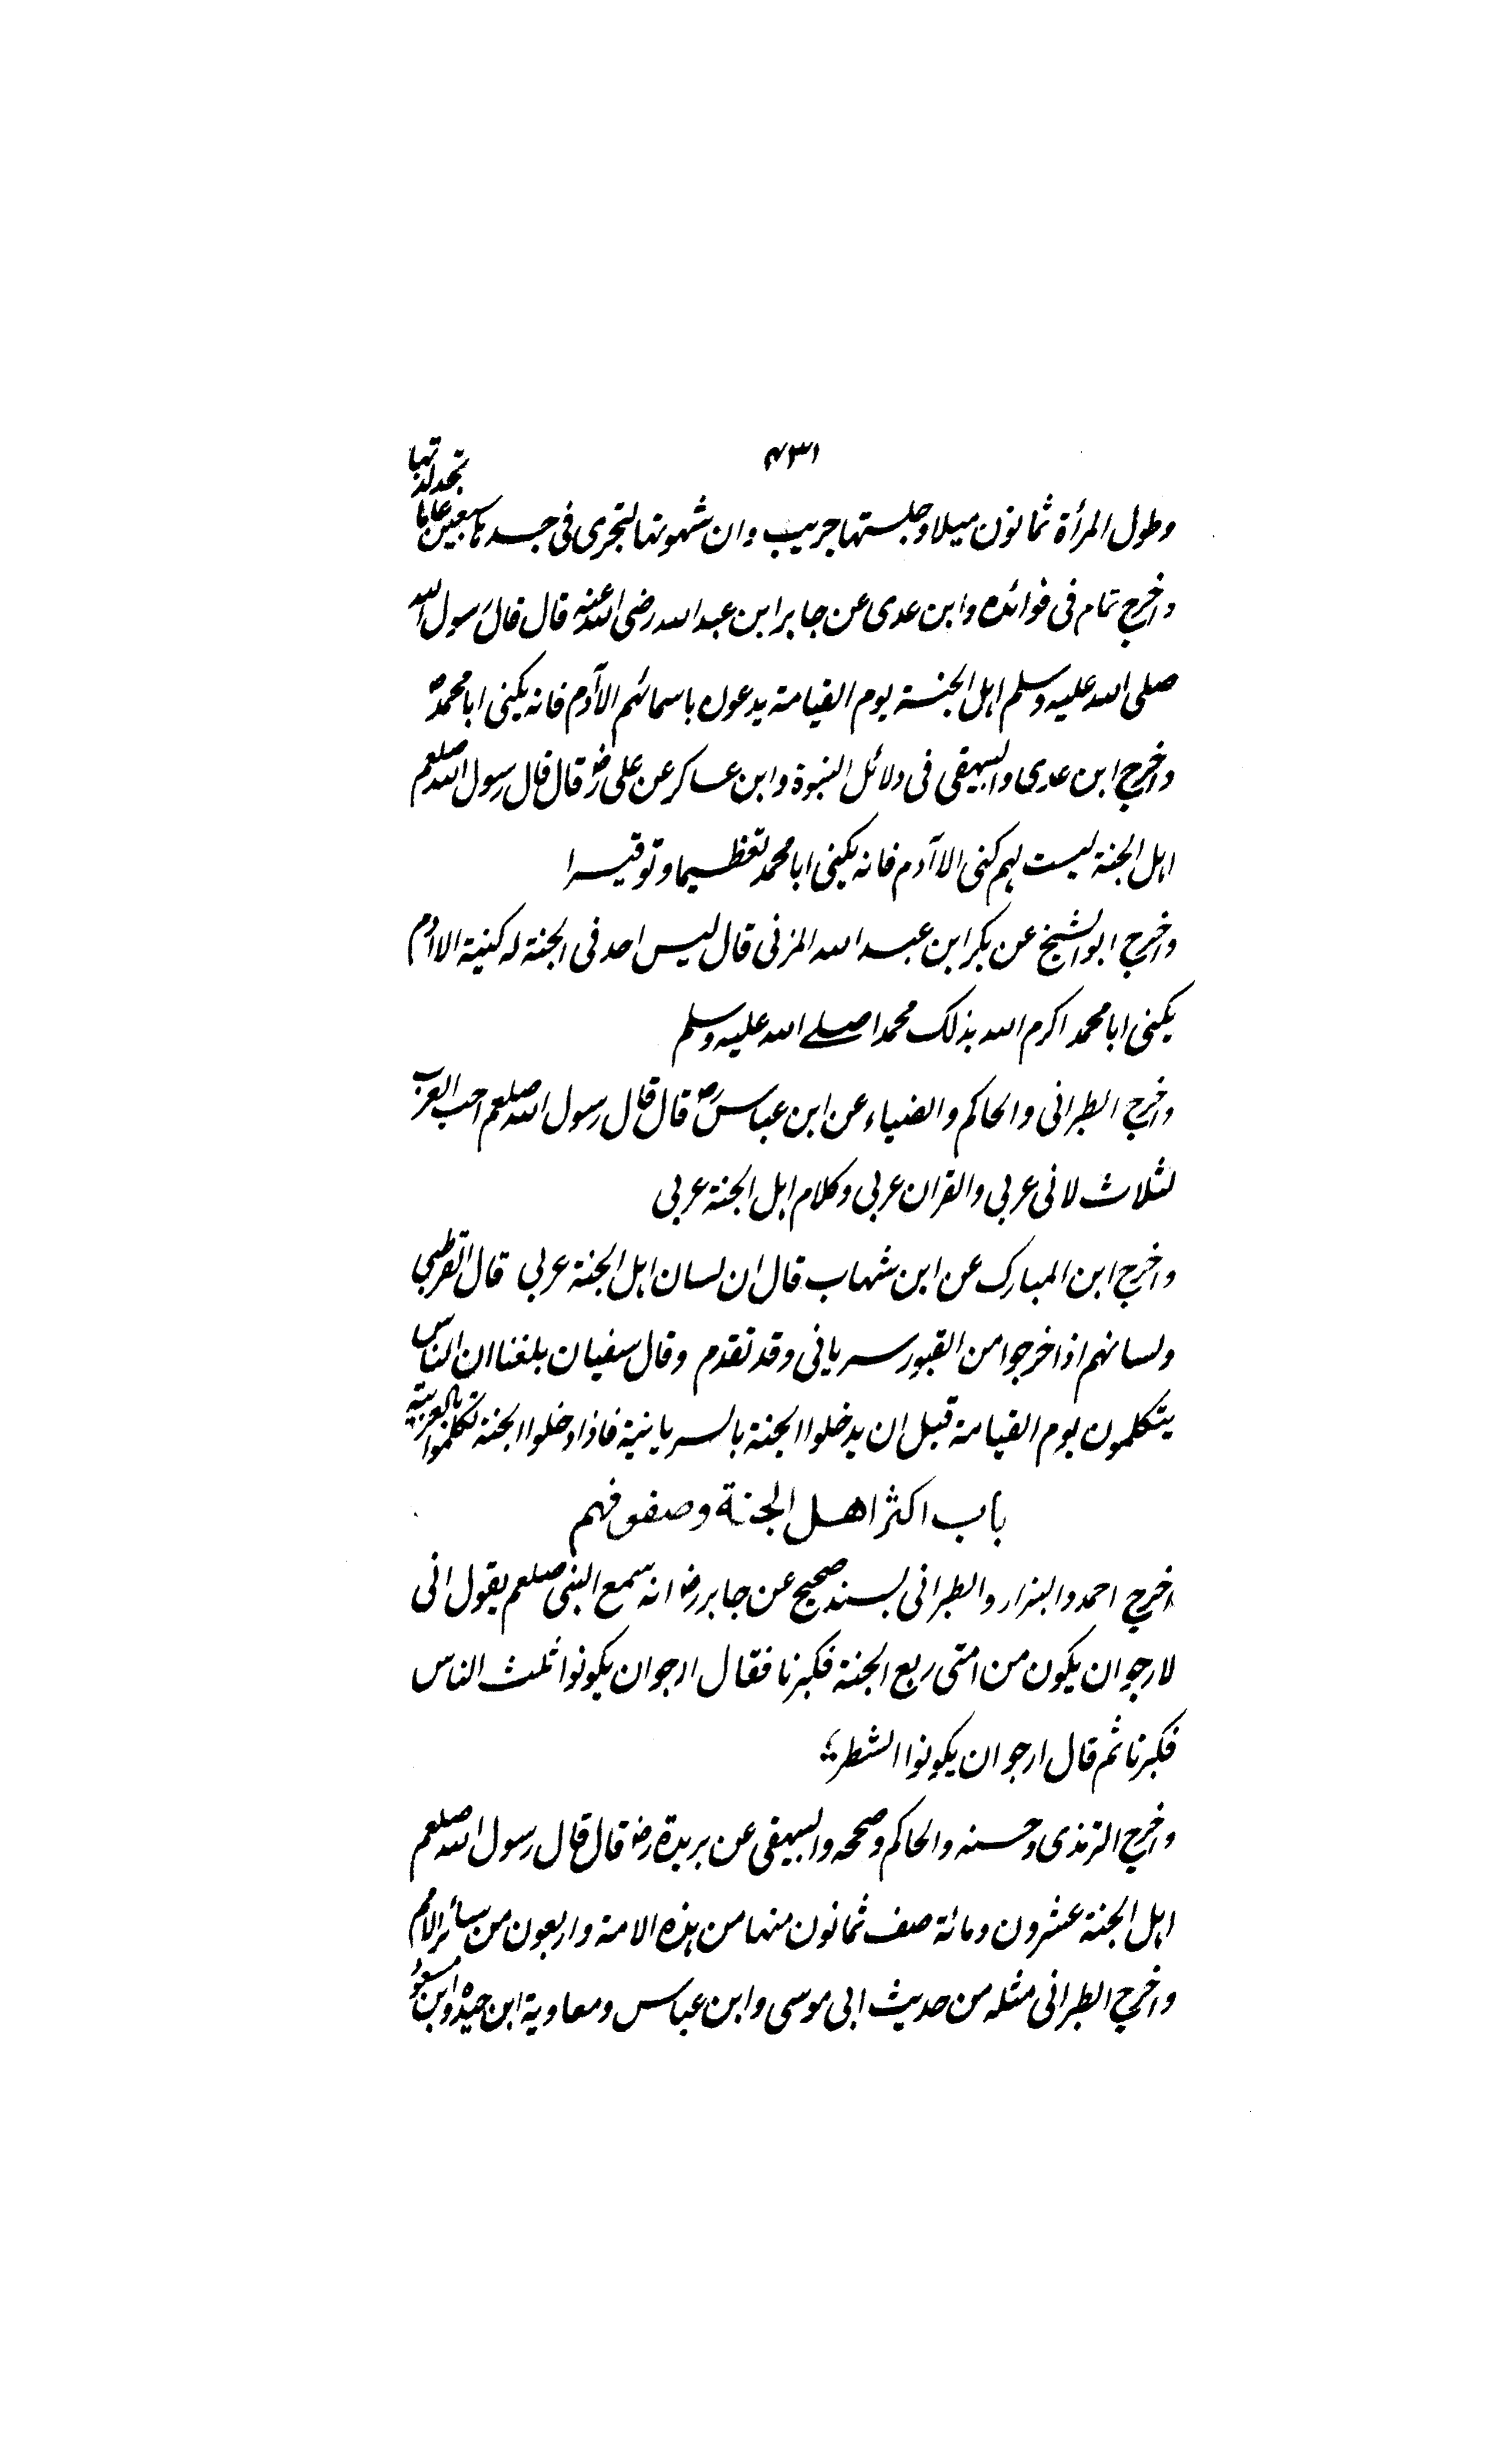 ۴۳۱
وطول المرأة ثمانون ميلا وجلستها جريب وان شهوتها لتجرى فى جسدها سبعين عاما تجد لذتها
واخرج تمام فى فوائده وابن عدى عن جابر ابن عبد الله رضى الله عنه قال قال رسول الله
صلى الله عليه وسلم اهل الجنة يوم القيامة يدعون باسمائهم الا آدم فانه يكنى ابا محمد
واخرج ابن عدى والبيهقى فى دلائل النبوة وابن عساكر عن على رض قال قال رسول الله صلعم
اهل الجنة ليست لهم كنى الا آدم فانه يكنى ابا محمد تعظيما وتوقيرا
واخرج ابو الشيخ عن بكر ابن عبد الله المزنى قال ليس احد فى الجنة له كنية الا ادم
يكنى ابا محمد اكرم الله بذلك محمدا صلے الله عليه وسلم
واخرج الطبرانى والحاكم والضياء عن ابن عباس رض قال قال رسول الله صلعم احب العرب
لثلاث لانى عربى والقران عربى وكلام اهل الجنة عربى
واخرج ابن المبارك عن ابن شهاب قال ان لسان اهل الجنة عربى قال القرطبى
ولسانهم اذا خرجوا من القبور سريانى وقد تقدم وقال سفيان بلغنا ان الناس
يتكلمون يوم القيامة قبل ان يدخلوا الجنة بالسريانية فاذا دخلوا الجنة تكلموا بالعربية
باب اكثر اهل الجنة وصفوفهم
اخرج احمد والبزار والطبرانى بسند صحيح عن جابر رض انه سمع النبى صلعم يقول انى
لارجو ان يكون من امتى ربع الجنة فكبرنا فقال ارجو ان يكونوا ثلث الناس
فكبرنا ثم قال ارجو ان يكونوا الشطر
واخرج الترمذى وحسنه والحاكم وصححه والبيهقى عن بريدة رض قال قال رسول الله صلعم
اهل الجنة عشرون ومائة صف ثمانون منها من هذه الامة واربعون من سائر الامم
واخرج الطبرانى مثله من حديث ابى موسى وابن عباس ومعاوية ابن حيدة وابن مسعود